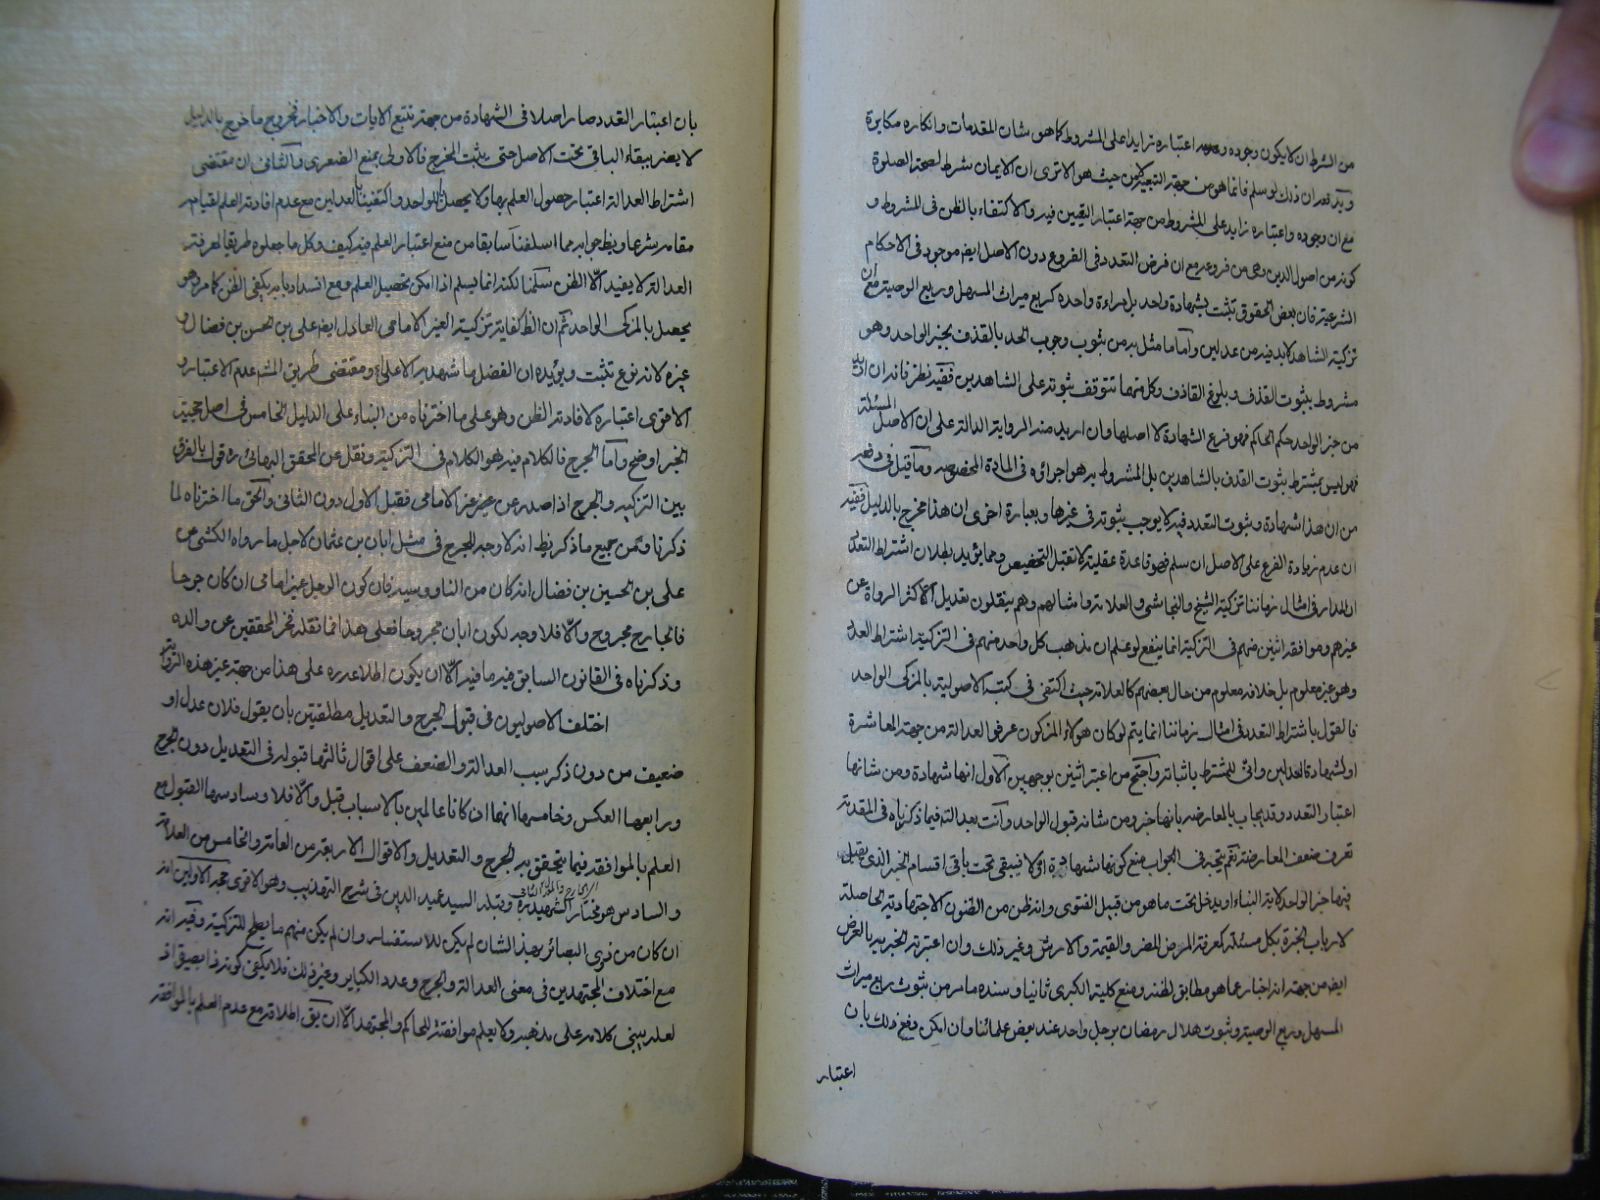 من الشرط ان لا يكون وجوده و اعتباره زايدا على المشروط كما هو شان المقدمات وانكاره مكابرة
و يدفعه ان ذلك لو سلم فانما هو من جهة التبعية من حيث هو الا ترى ان الايمان شرط لصحة الصلوة
مع ان وجوده واعتباره زايد على المشروط من جهة اعتبار اليقين فيه والاكتفاء بالظن في المشروط و
كونه من اصول الدين وهى من فروعه مع ان فرض التعدد في الفروع دون الاصل ايضا موجود في الاحكام
الشرعية فان بعض الحقوق تثبت بشهادة واحد بل امراءة واحده كربع ميراث المستهل وربع الوصية مع ان
تزكية الشاهد لا بد فيه من عدلين واما ما مثل به من ثبوت وجوب الحد بالقذف بخبر الواحد وهو
مشروط بثبوت القذف وبلوغ القاذف وكل منهما تتوقف ثبوته على الشاهدين ففيه نظر فانه ان اريد
من خبر الواحد حكم الحاكم فهو فرع الشهادة لا اصلها وان اريد منه الرواية الدالة على ان الاصل المسئلة
فهو ليس بمشترط بثبوت القذف بالشاهدين بل المشروط به هو اجرائه في المادة المخصوصه وما قيل في دفعه
من ان هذا شهادة وثبوت التعدد فيه لا يوجب ثبوته في غيرها وبعبارة اخرى ان هذا مخرج بالدليل ففيه
ان عدم زيادة الفرع على الاصل ان سلم فهو قاعدة عقلية لا تقبل التخصيص ومما يؤيد بطلان اشتراط التعدد
ان المدار في امثال زماننا تزكية الشيخ والنجاشى والعلامة وامثالهم وهم ينقلون تعديل اكثر الرواة عن
غيرهم وموافقة اثنين منهم في التزكية انما ينفع لو علم ان مذهب كل واحد منهم في التزكية اشتراط العدد
وهو غير معلوم بل خلافه معلوم من حال بعضهم كالعلامة حيث اكتفى في كتبه الاصولية بالمزكى الواحد
فالقول باشتراط التعدد في امثال زماننا انما يتم لو كان هؤلاء المزكون عرفوا العدالة من جهة المعاشرة
او لشهادة العدلين وانى للمشترط باثباته واحتج من اعتبر اثنين بوجهين الاول انها شهادة ومن شانها
اعتبار التعدد وقد يجاب بالمعارضه بانها خبر ومن شانه قبول الواحد وانت بعد التامل فيما ذكرناه في المقدمة
تعرف ضعف المعارضة نعم يتجه في الجواب منع كونها شهادة فيبقى تحت باقى اقسام الخبر الذى يقبل
فيها خبر الواحد لاية البناء او يدخل تحت ما هو من قبيل الفتوى وانه ظن من الظنون الاجتهادية الحاصلة
لارباب الخبرة بكل مسئلة كمعرفة المرض المضر والقيمة والارش وغير ذلك وان اعتبرته الخبرية بالعرض
ايضا من جهة انه اخبار عما هو مطابق لظنه ومنع كلية الكبرى ثانيا وسنده ما مر من ثبوت ربع ميراث
المستهل وربع الوصية وثبوت هلال رمضان برجل واحد عند بعض علمائنا وان امكن دفع ذلك بان
اعتبار
بان اعتبار التعدد صار اصلا في الشهادة من جهة تتبع الايات والاخبار فخروج ما خرج بالدليل
لا يضر ببقاء الباقى تحت الاصل حتى يثبت المخرج فالاولى بمنع الصغرى والثانى ان مقتضى
اشتراط العدالة اعتبار حصول العلم بها ولا يحصل بالواحد واكتفينا بالعدلين مع عدم افادته العلم لقيامه
مقامه شرعا ويظهر جوابه مما اسلفنا سابقا من منع اعتبار العلم فيه كيف وكل ما جعلوه طريقا لمعرفة
العدالة لا يفيد الا الظن سلمنا لكنه انما يسلم اذا امكن تحصيل العلم ومع انسداد بابه يكفى الظن كما مر وهو
يحصل بالمزكى الواحد ثم ان الظ كفاية تزكية الغير الامامى العادل ايضا على بن الحسن بن فضال و
غيره لانه نوع تثبت ويؤيده ان الفضل ما شهد به الاعداء ومقتضى طريق المش عدم الاعتبار و
الاقوى اعتباره لافادته الظن وهو على ما اخترناه من البناء على الدليل الخامس في اصل حجية
الخبر اوضح واما الجرح فالكلام فيه هو الكلام في التزكية ونقل عن المحقق البهائى ره قول بالفرق
بين التزكية والجرح اذا صدر عن غير الامامى فقبل الاول دون الثانى والحق ما اخترناه لما
ذكرنا ومن جميع ما ذكر يظ انه لا وجه للجرح في مثل ابان بن عثمان لاجل ما رواه الكشى عن
على بن الحسين بن فضال انه كان من الناووسية فان كون الرجل غير امامى ان كان جرحا
فالجارح مجروح والا فلا وجه لكون ابان مجروحا فعلى هذا فما نقله فخر المحققين عن والده
وذكرناه في القانون السابق فيه ما فيه الا ان يكون اطلاعه ره على هذا من جهة غير هذه الرواية
اختلف الاصوليون في قبول الجرح والتعديل مطلقين بان يقول فلان عدل او
ضعيف من دون ذكر سبب العدالة والضعف على اقوال ثالثها قبوله في التعديل دون الجرح
ورابعها العكس وخامسها انهما ان كانا عالمين بالاسباب قبل والا فلا وسادسها القبول مع
العلم بالموافقة فيما يتحقق به الجرح والتعديل والاقوال الاربعة من العامة والخامس من العلامة
والسادس هو مختار الشهيد ره وقبله السيد عميد الدين في شرح التهذيب وهو الاقوى حجة الاولين انه
ان كان من ذوى البصائر بهذا الشان لم يكن للاستفسار وان لم يكن منهم ما يصلح للتزكية وفيه انه
مع اختلاف المجتهدين في معنى العدالة والجرح وعدد الكباير وغير ذلك فلا يكفى كونه ذا بصيرة اذ
لعله يبنى كلامه على مذهبه ولا يعلم موافقته للحاكم والمجتهد الا ان يق اطلاقه مع عدم العلم بالموافقة